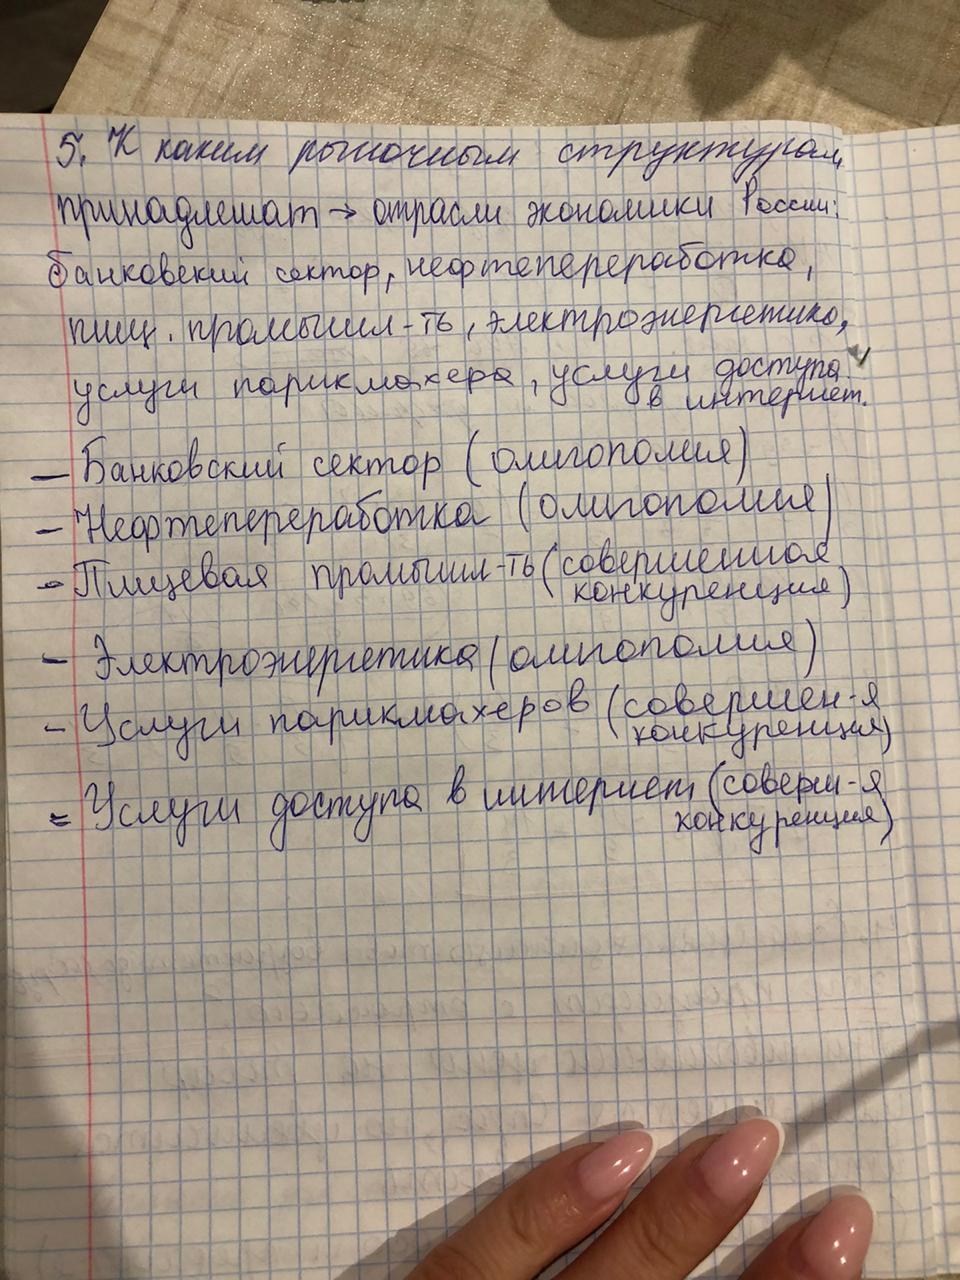 5. К каким рыночным структурам
принадлежат → отрасли экономики России:
банковский сектор, нефтепереработка,
пищ. промышл-ть, электроэнергетика,
услуги парикмахера, услуги доступа
в интернет.
— Банковский сектор (олигополия)
- Нефтепереработка (олигополия)
- Пищевая промышл-ть (совершенная
конкуренция)
- Электроэнергетика (олигополия)
- Услуги парикмахеров (совершен-я
конкуренция)
- Услуги доступа в интернет (соверш-я
конкуренция)